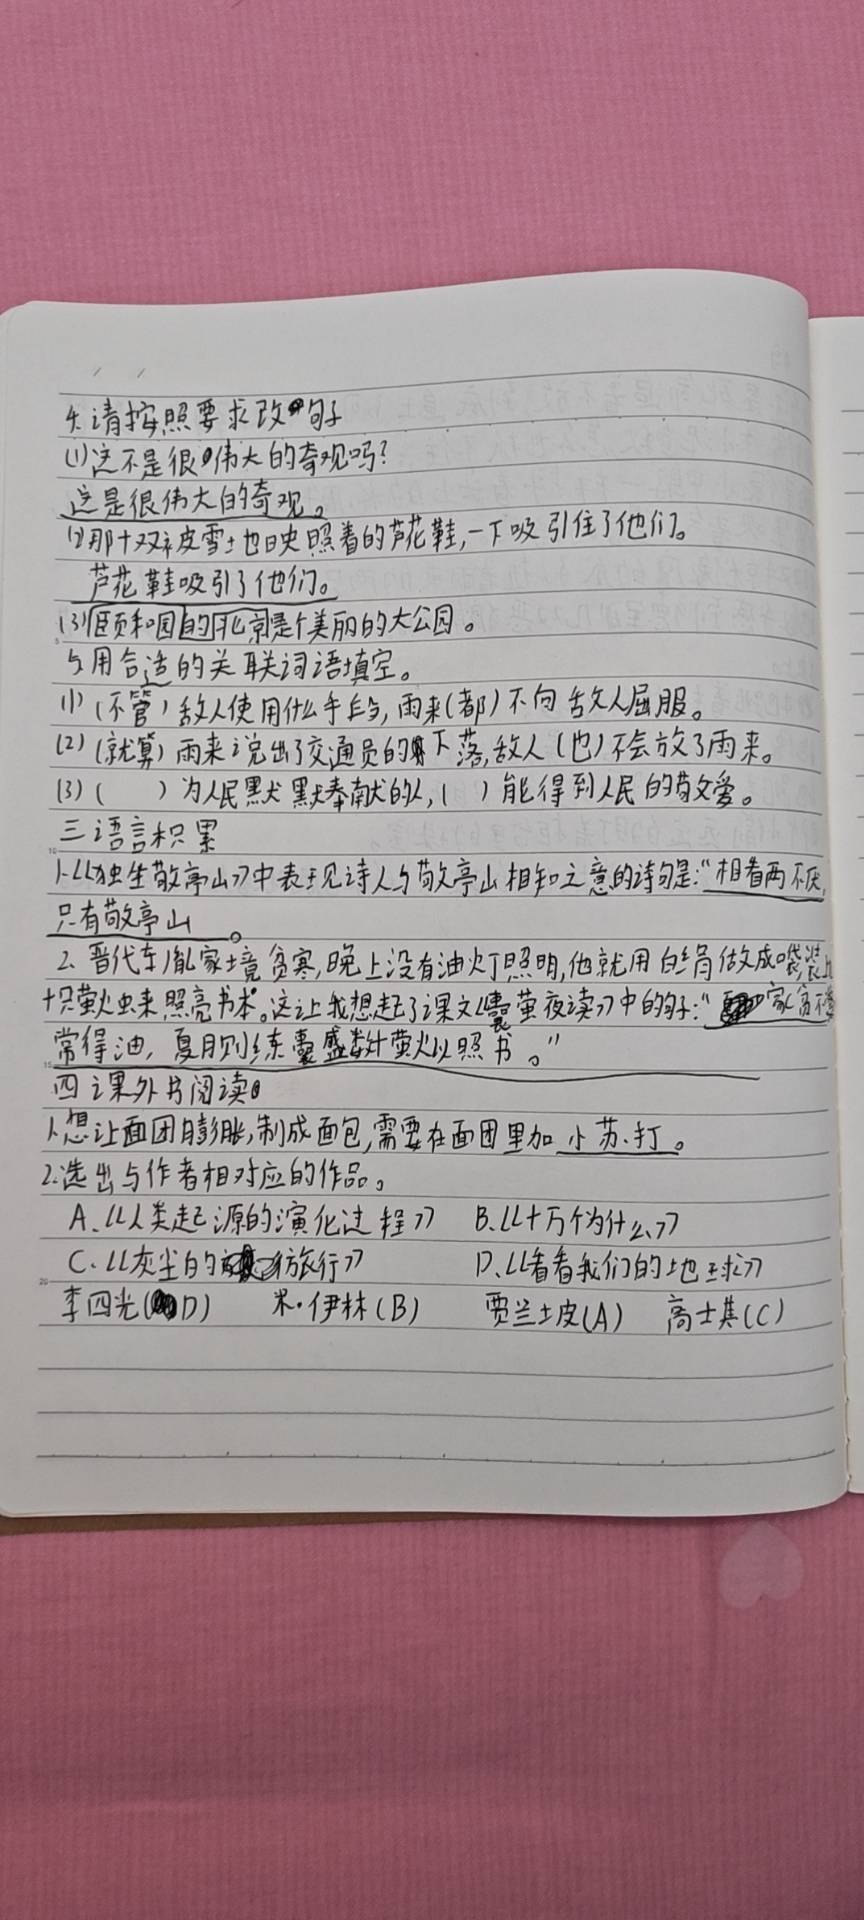 4.请按照要求改句子
(1)这不是很伟大的奇观吗?
这是很伟大的奇观。
(2)那十双被雪土也映照着的芦花鞋,一下吸引住了他们。
芦花鞋吸引了他们。
(3)颐和园的北京是个美丽的大公园。
5.用合适的关联词语填空。
(1)(不管)敌人使用什么手段,雨来(都)不向敌人屈服。
(2)(就算)雨来说出了交通员的下落,敌人(也)不会放了雨来。
(3)( )为人民默默奉献的人,( )能得到人民的敬爱。
三语言积累
1.《独坐敬亭山》中表现诗人与敬亭山相知之意的诗句是:“相看两不厌,
只有敬亭山。
2.晋代车胤家境贫寒,晚上没有油灯照明,他就用白绢做成袋,装上
十只萤火虫来照亮书本。这让我想起了课文《囊萤夜读》中的句子:“家贫不
常得油,夏月则练囊盛数十萤火以照书。”
四课外书阅读
1.想让面团膨胀,制成面包,需要在面团里加小苏打。
2.选出与作者相对应的作品。
A.《人类起源的演化过程》 B.《十万个为什么》
C.《灰尘的旅行》 D.《看看我们的地球》
李四光(D) 米·伊林(B) 贾兰坡(A) 高士其(C)